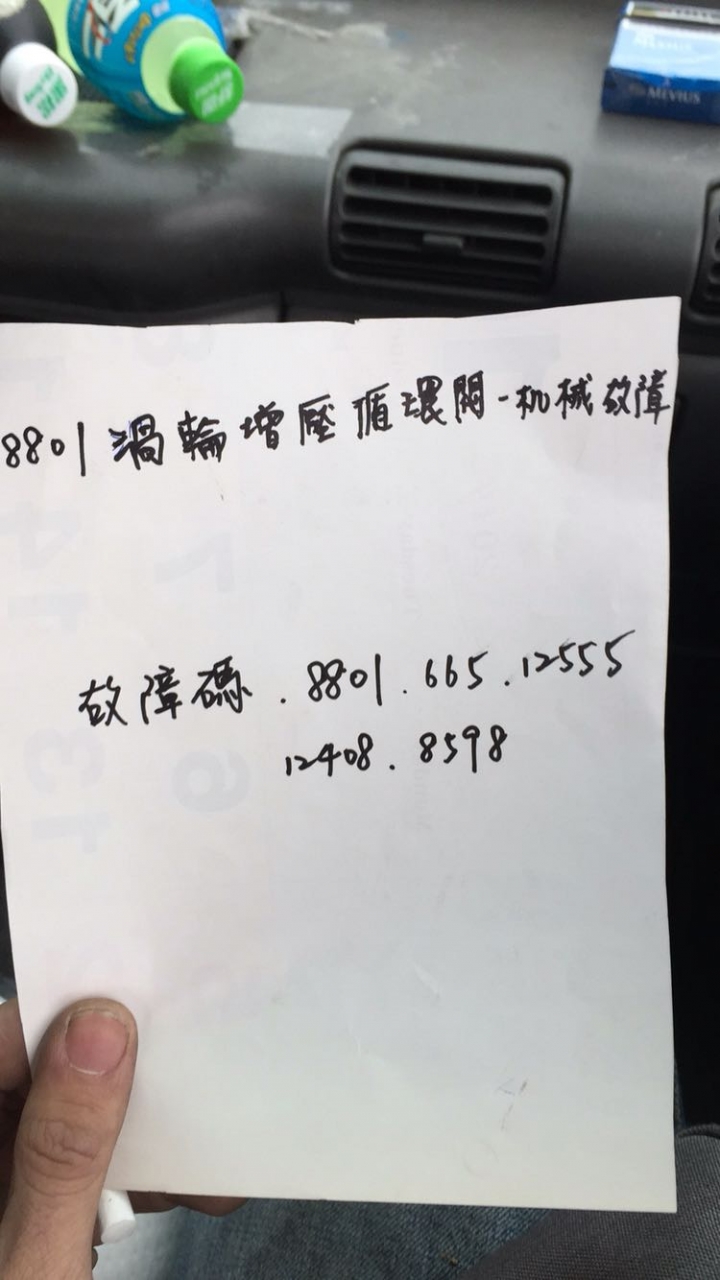 MEVIUS
8801渦輪增壓循環閥-机械故障
故障碼.8801.665.12555
12408.8598